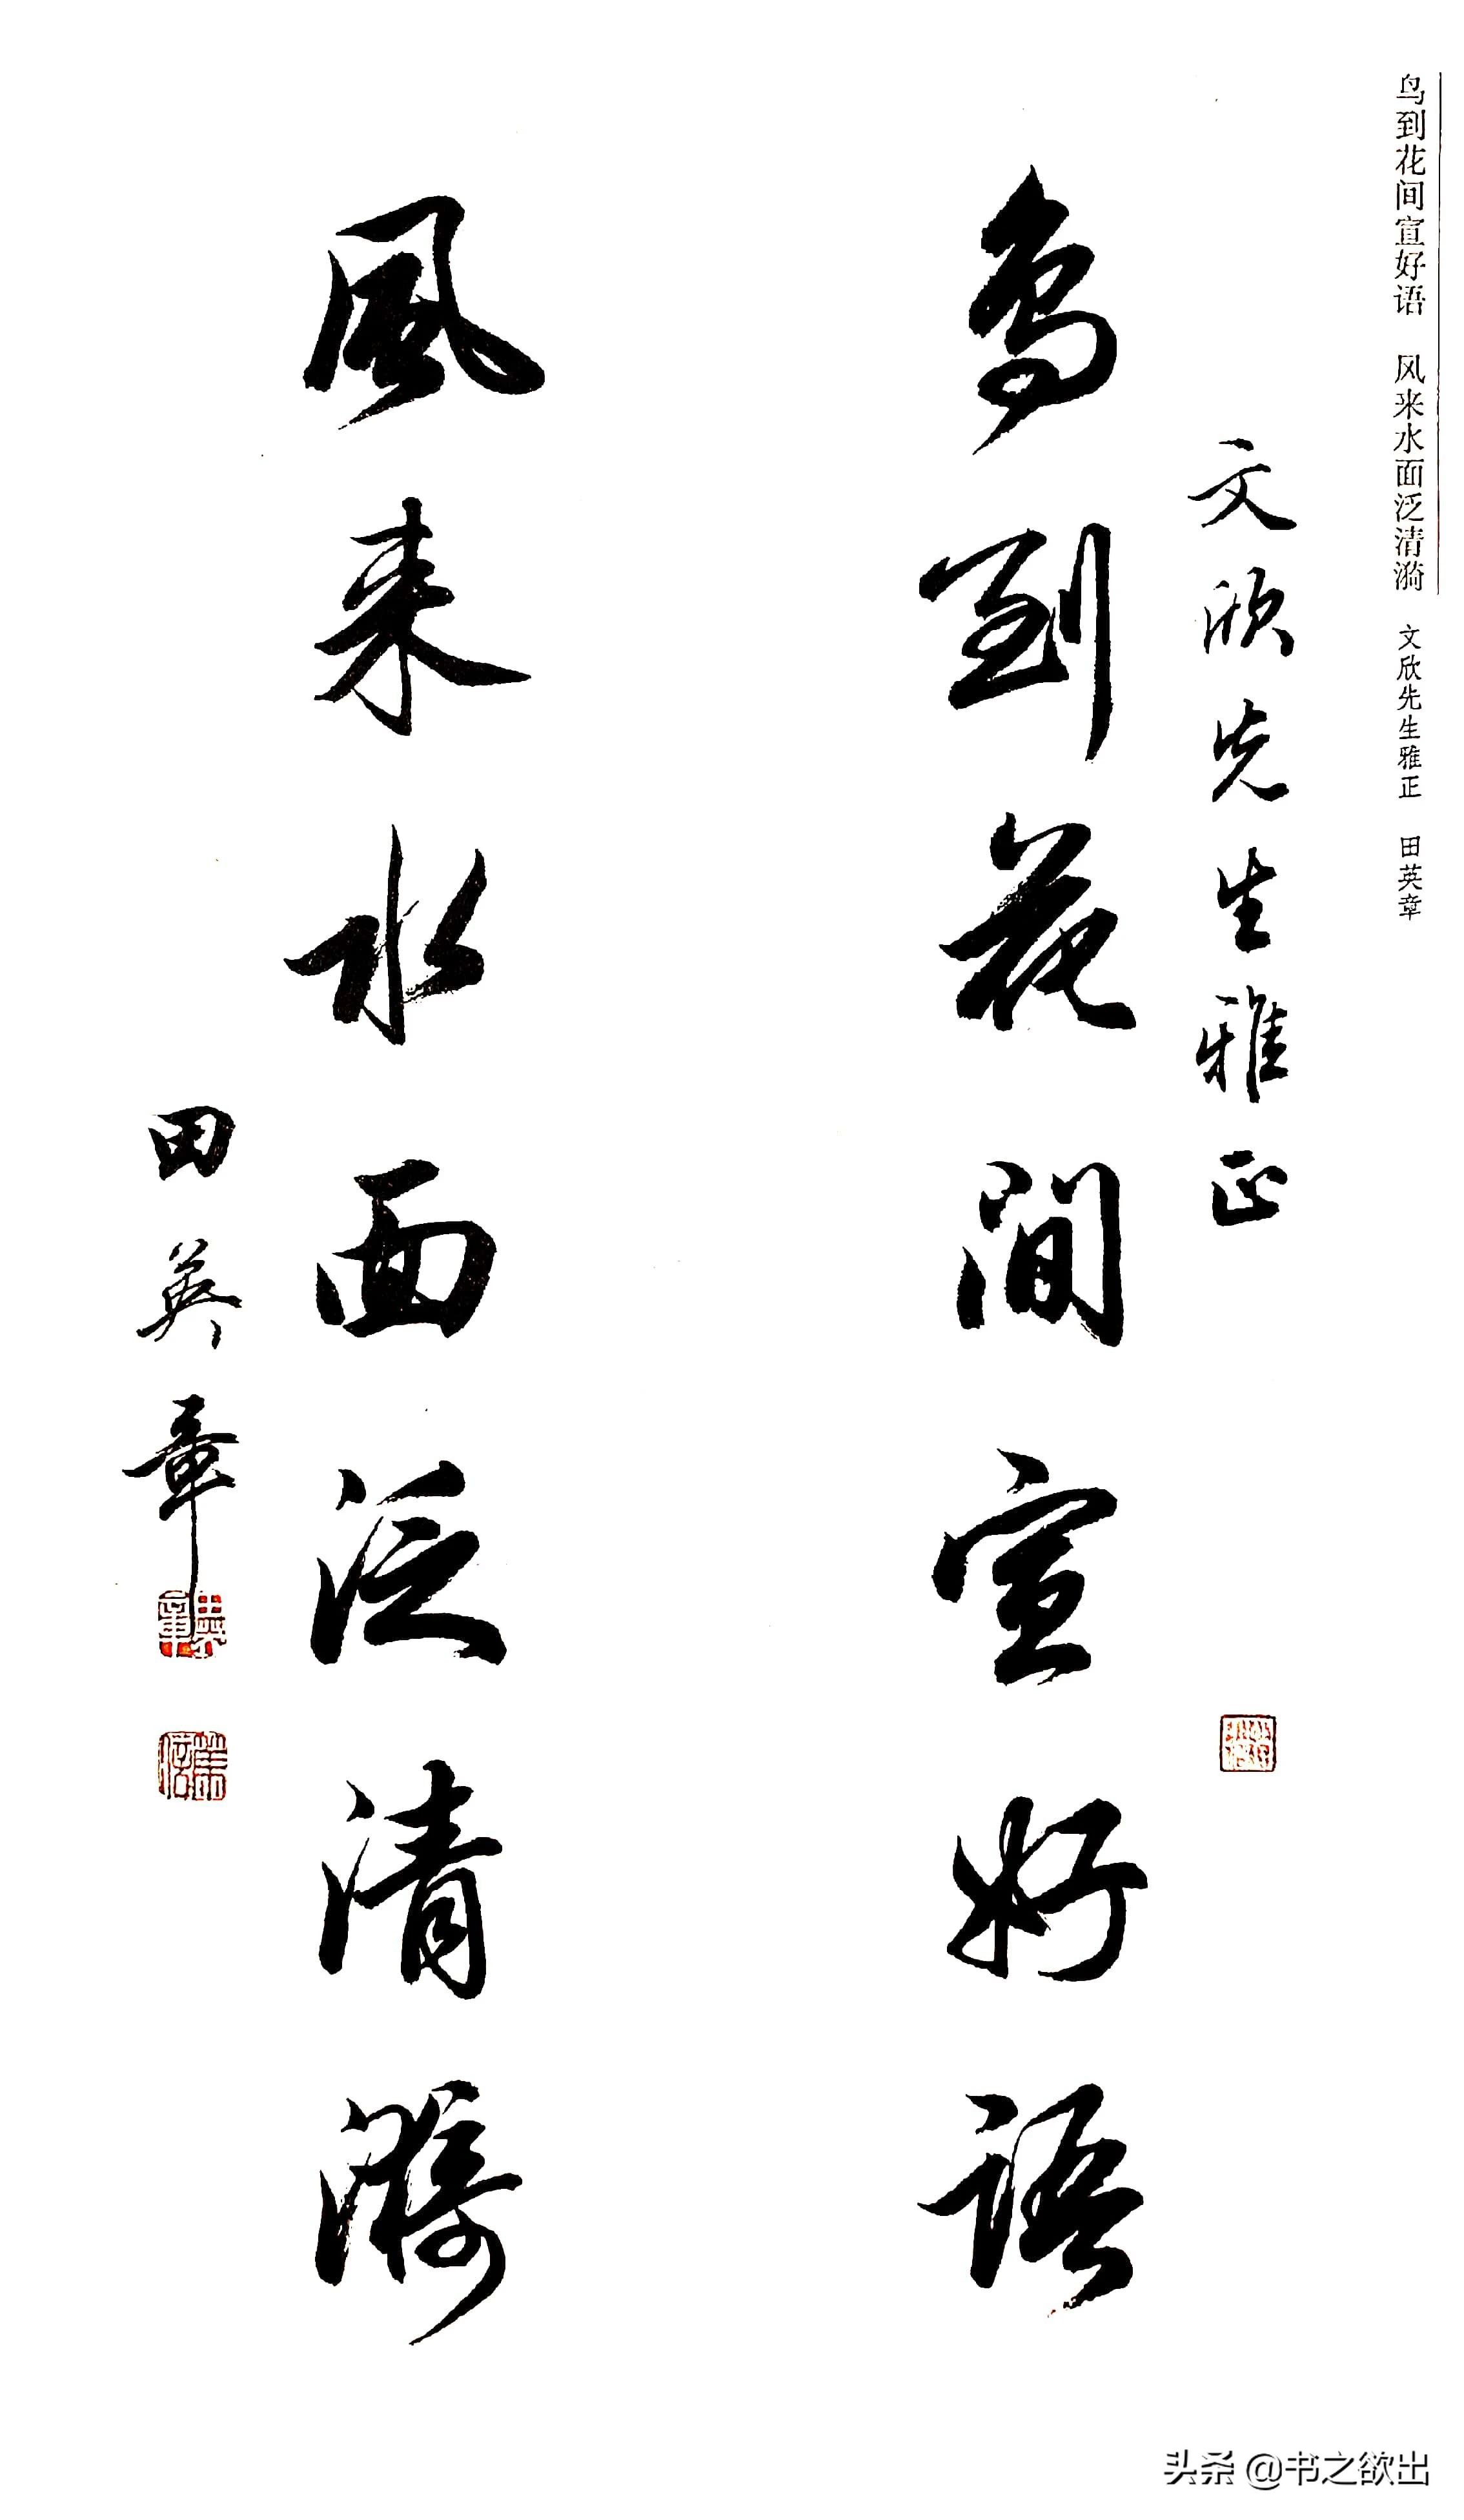 鸟到花间宣好语 风来水面泛清漪 文欣先生雅正 田英章
文欣先生雅正
鳥到花間宣好語
風来水面泛清漪
田英章
头条 @书之欲出